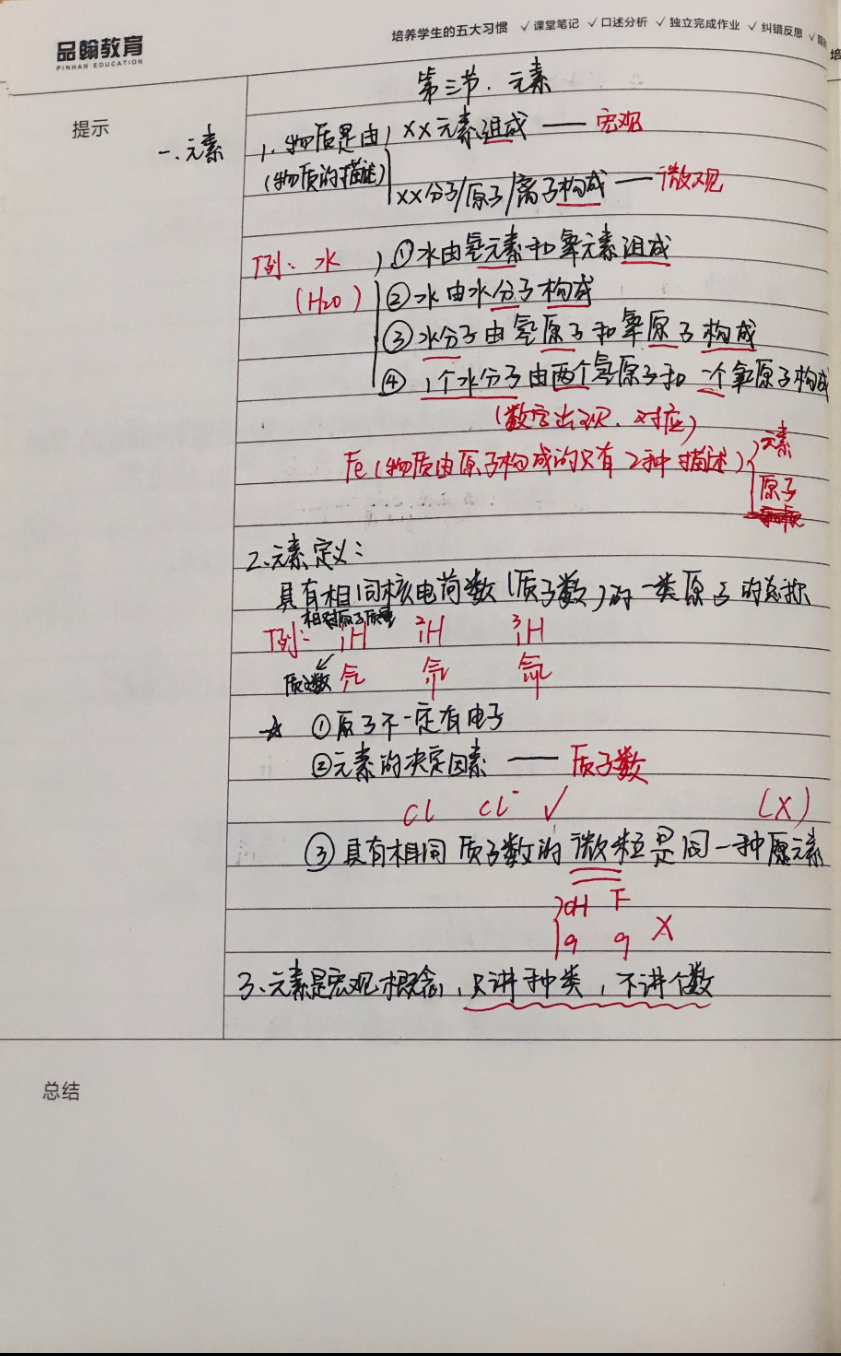 品翰教育
PINHAN EDUCATION
培养学生的五大习惯 ✓课堂笔记 ✓口述分析 ✓独立完成作业 ✓纠错反思 ✓
培
提示
第三节.元素
一.元素
1.物质是由 XX元素组成 — 宏观
(物质的描述)
XX分子/原子/离子构成 — 微观
例:水 ①水由氢元素和氧元素组成
(H2O) ②水由水分子构成
③水分子由氢原子和氧原子构成
④1个水分子由两个氢原子和一个氧原子构成
(数字出现.对应)
Fe(物质由原子构成的只有2种描述) 元素
原子
2.元素定义:
具有相同核电荷数(质子数)的一类原子的总称
相对原子质量
例: ¹₁H ²₁H ³₁H
质子数 氕 氘 氚
☆ ①原子不一定有电子
②元素的决定因素 — 质子数
Cl Cl⁻ ✓ (X)
③具有相同质子数的微粒是同一种元素
OH F
9 9 X
3.元素是宏观概念,只讲种类,不讲个数
总结